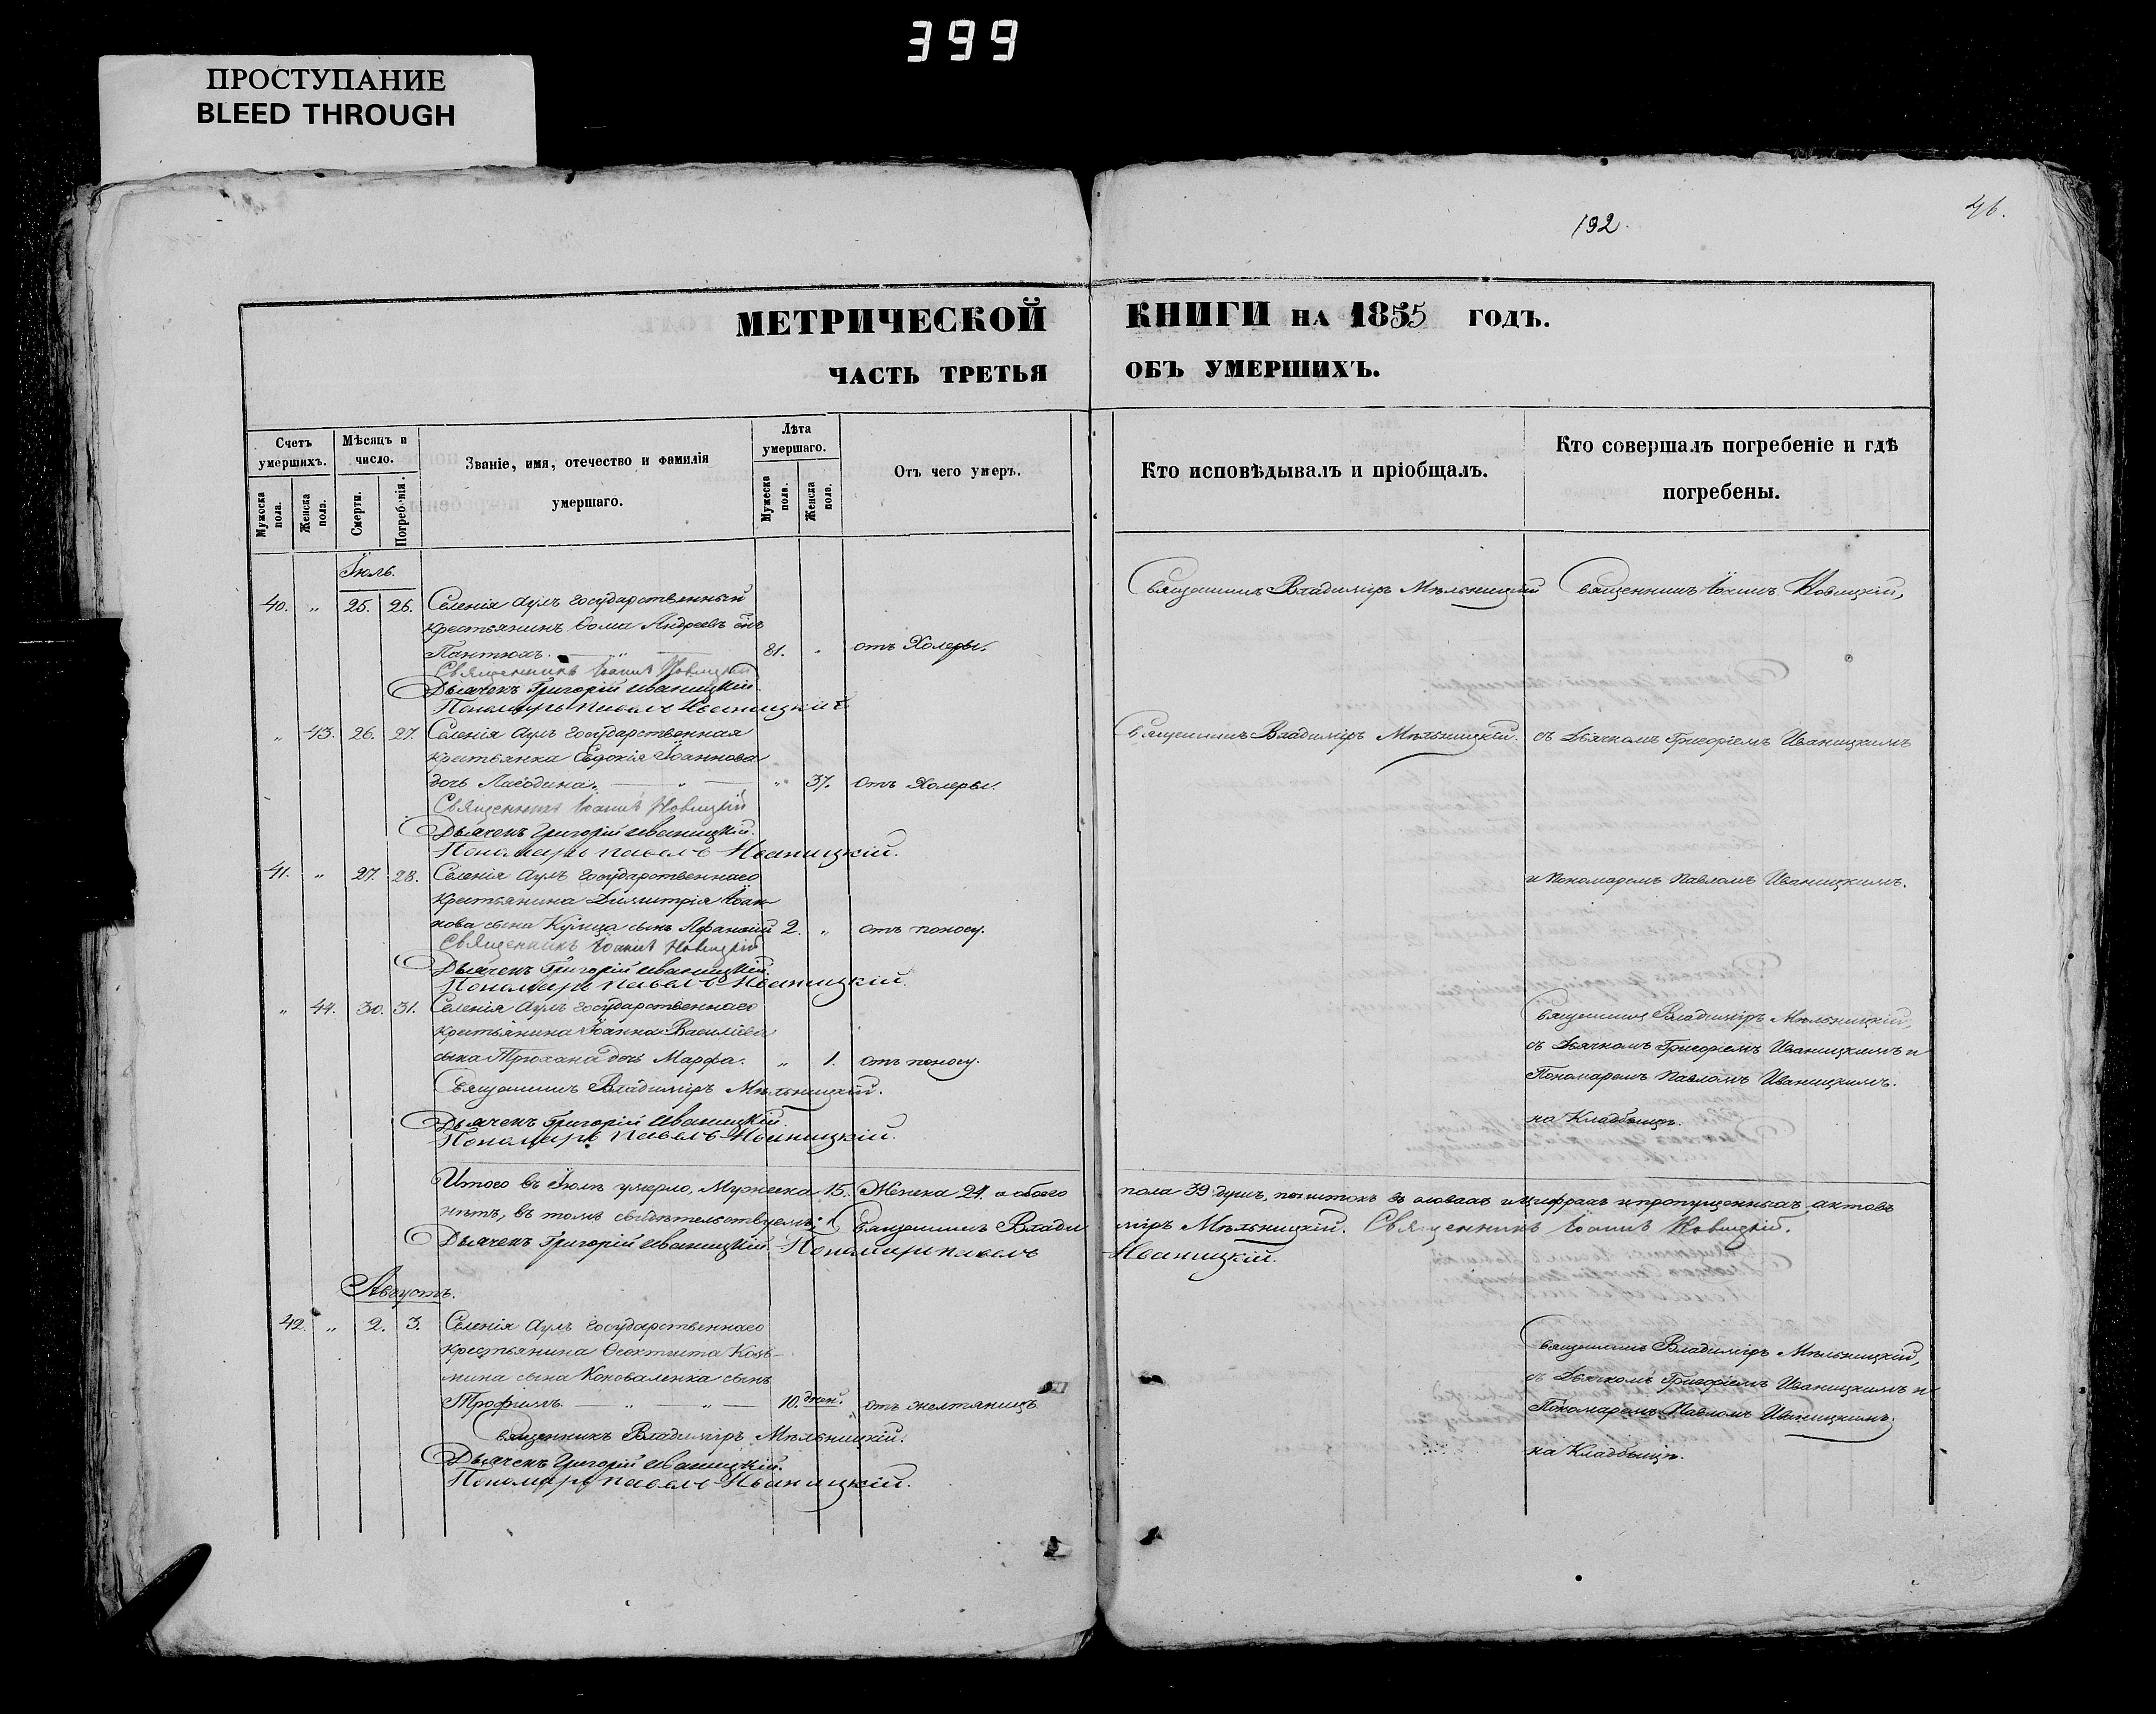 399
ПРОСТУПАНИЕ
BLEED THROUGH
192.
46.
МЕТРИЧЕСКОЙ КНИГИ НА 1855 ГОДЪ.
ЧАСТЬ ТРЕТЬЯ ОБЪ УМЕРШИХЪ.
Счетъ умершихъ.
Мужеска пола.
Женска пола.
Мѣсяцъ и число.
Смерти.
Погребенія.
Званіе, имя, отечество и фамилія
умершаго.
Лѣта умершаго.
Мужеска пола.
Женска пола.
Отъ чего умеръ.
Кто исповѣдывалъ и пріобщалъ.
Кто совершалъ погребеніе и гдѣ
погребены.
Іюль.
40. „ 25. 26. Селенія Аулъ государственный
крестьянинъ Ѳома Андреевъ
Пантюхъ. 81. „ отъ Холеры.
Священникъ Владиміръ Мѣльницкій
Священникъ Іоаннъ Новицкій,
Священникъ Іоаннъ Новицкій
Дьячекъ Григорій Иваницкій
Пономарь Павелъ Иваницкій
„ 43. 26. 27. Селенія Аулъ государственная
крестьянка Евдокія Іоаннова
дочь „ 37. отъ Холеры.
Священникъ Владиміръ Мѣльницкій.
съ Дьячкомъ Григоріемъ Иваницкимъ
Священникъ Іоаннъ Новицкій
Дьячекъ Григорій Иваницкій.
Пономарь Павелъ Иваницкій.
41. „ 27. 28. Селенія Аулъ государственнаго
крестьянина Димитрія Іоан-
нова сына сынъ Аѳанасій 2. „ отъ поносу.
и Пономаремъ Павломъ Иваницкимъ.
Священникъ Іоаннъ Новицкій
Дьячекъ Григорій Иваницкій.
Пономарь Павелъ Иваницкій.
„ 44. 30. 31. Селенія Аулъ государственнаго
крестьянина Іоанна Василіева
сына дочь Марфа. „ 1. отъ поносу.
Священникъ Владиміръ Мѣльницкій.
Дьячекъ Григорій Иваницкій.
Пономарь Павелъ Иваницкій.
Священникъ Владиміръ Мѣльницкій,
съ Дьячкомъ Григоріемъ Иваницкимъ и
Пономаремъ Павломъ Иваницкимъ.
на Кладбищѣ.
Итого въ Іюлѣ умерло, Мужеска 15. Женска 24. а обоего пола 39 душъ, въ словахъ и цифрахъ и пропущенныхъ актовъ
нѣтъ, въ томъ свидѣтельствуемъ: Священникъ Владиміръ Мѣльницкій. Священникъ Іоаннъ Новицкій.
Дьячекъ Григорій Иваницкій. Пономарь Павелъ Иваницкій.
Августъ.
42. „ 2. 3. Селенія Аулъ государственнаго
крестьянина Ѳеоктиста Козь-
мина сына Коноваленка сынъ
Трофимъ. 10. дней. „ отъ желтяницъ
Священникъ Владиміръ Мѣльницкій.
Дьячекъ Григорій Иваницкій.
Пономарь Павелъ Иваницкій.
Священникъ Владиміръ Мѣльницкій,
съ Дьячкомъ Григоріемъ Иваницкимъ и
Пономаремъ Павломъ Иваницкимъ.
на Кладбищѣ.